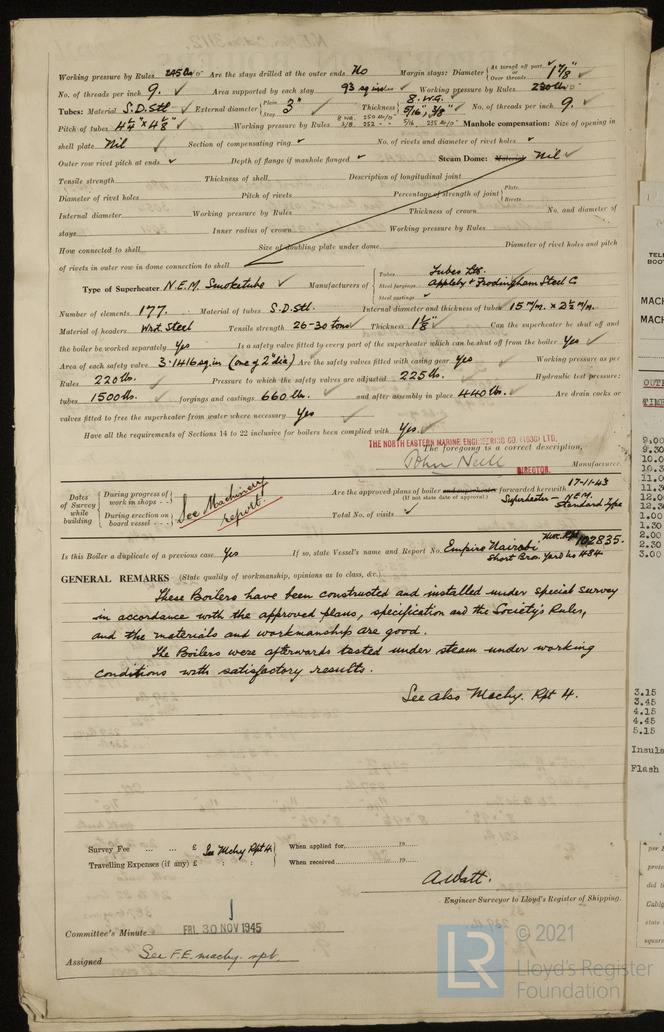 Working pressure by Rules 245 Are the stays drilled at the outer ends No Margin stays: Diameter { At turned off part, or Over threads 1 7/8" ✓
No. of threads per inch 9. ✓ Area supported by each stay 93 sq ins ✓ Working pressure by Rules 230 lbs
Tubes: Material S.D. Stl ✓ External diameter { Plain Stay 3" ✓ Thickness { 8. W.G. 5/16", 3/8" ✓ No. of threads per inch 9. ✓
Pitch of tubes 4 1/4" x 4 1/8" ✓ Working pressure by Rules 8 WG 250 3/8 252 5/16 255 Manhole compensation: Size of opening in
shell plate Nil ✓ Section of compensating ring ✓ No. of rivets and diameter of rivet holes ✓
Outer row rivet pitch at ends ✓ Depth of flange if manhole flanged ✓ Steam Dome: Material Nil ✓
Tensile strength Thickness of shell Description of longitudinal joint
Diameter of rivet holes Pitch of rivets Percentage of strength of joint { Plate Rivets
Internal diameter Working pressure by Rules Thickness of crown No. and diameter of
stays Inner radius of crown Working pressure by Rules
How connected to shell Size of doubling plate under dome Diameter of rivet holes and pitch
of rivets in outer row in dome connection to shell
Type of Superheater N.E.M. Smoketube ✓ Manufacturers of { Tubes Tubes Ltd. Steel forgings Appleby & Frodingham Steel C Steel castings ✓
Number of elements 177. Material of tubes S.D. Stl. Internal diameter and thickness of tubes 15 m/m. x 2 1/2 m/m.
Material of headers Wrot. Steel Tensile strength 26-30 tons ✓ Thickness 1 1/8" ✓ Can the superheater be shut off and
the boiler be worked separately Yes Is a safety valve fitted to every part of the superheater which can be shut off from the boiler Yes ✓
Area of each safety valve 3.1416 sq.in (one of 2" dia) Are the safety valves fitted with easing gear Yes Working pressure as per
Rules 220 lbs. Pressure to which the safety valves are adjusted 225 lbs. Hydraulic test pressure:
tubes 1500 lbs. forgings and castings 660 lbs. and after assembly in place 440 lbs. Are drain cocks or
valves fitted to free the superheater from water where necessary Yes ✓
Have all the requirements of Sections 14 to 22 inclusive for boilers been complied with Yes.
THE NORTH EASTERN MARINE ENGINEERING CO. (1938) LTD.
The foregoing is a correct description,
John Neill DIRECTOR. Manufacturer.
Dates of Survey while building { During progress of work in shops - - During erection on board vessel - - - } See Machinery report!
Are the approved plans of boiler and superheater forwarded herewith 17-11-43
(If not state date of approval.) Superheater - N.E.M. Standard Type
Total No. of visits ✓
Is this Boiler a duplicate of a previous case Yes If so, state Vessel's name and Report No. Empire Nairobi Nwc. Rpt 102835.
Short Bros. Yard No 484
GENERAL REMARKS (State quality of workmanship, opinions as to class, &c.)
These Boilers have been constructed and installed under special survey
in accordance with the approved plans, specification and the Society's Rules,
and the materials and workmanship are good.
The Boilers were afterwards tested under steam under working
conditions with satisfactory results.
See also Machy. Rpt 4.
Survey Fee ... ... £ See Mchy Rpt 4. When applied for, 19
Travelling Expenses (if any) £ : : When received 19
A. Watt.
Engineer Surveyor to Lloyd's Register of Shipping.
Committee's Minute FRI. 30 NOV 1945
Assigned See F.E. machy. rpt
LR © 2021
Lloyd's Register
Foundation
TEL
BOO
MACH
MACH
OUT
TIME
9.00
9.30
10.0
10.3
11.0
11.3
12.0
12.3
1.00
1.30
2.00
2.30
3.00
3.15
3.45
4.15
4.45
5.15
Insula
Flash